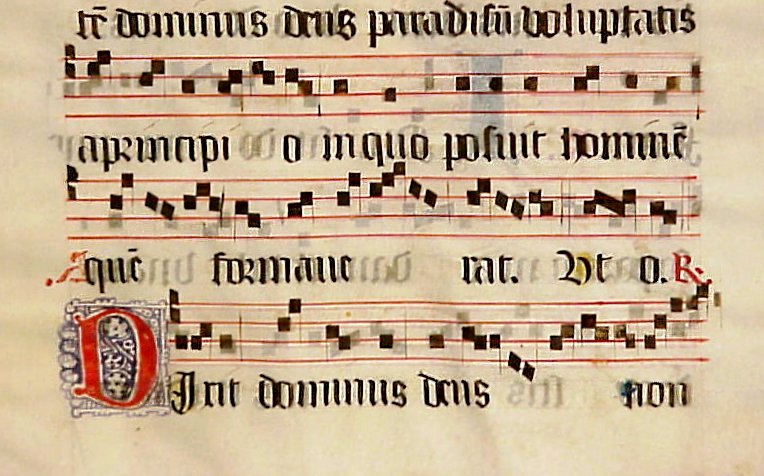 tẽ dominus deus paradisũ voluptatis
aprincipi o inquo posuit hominẽ
quẽ formaue rat. Ut o. R.
DIxit dominus deus non